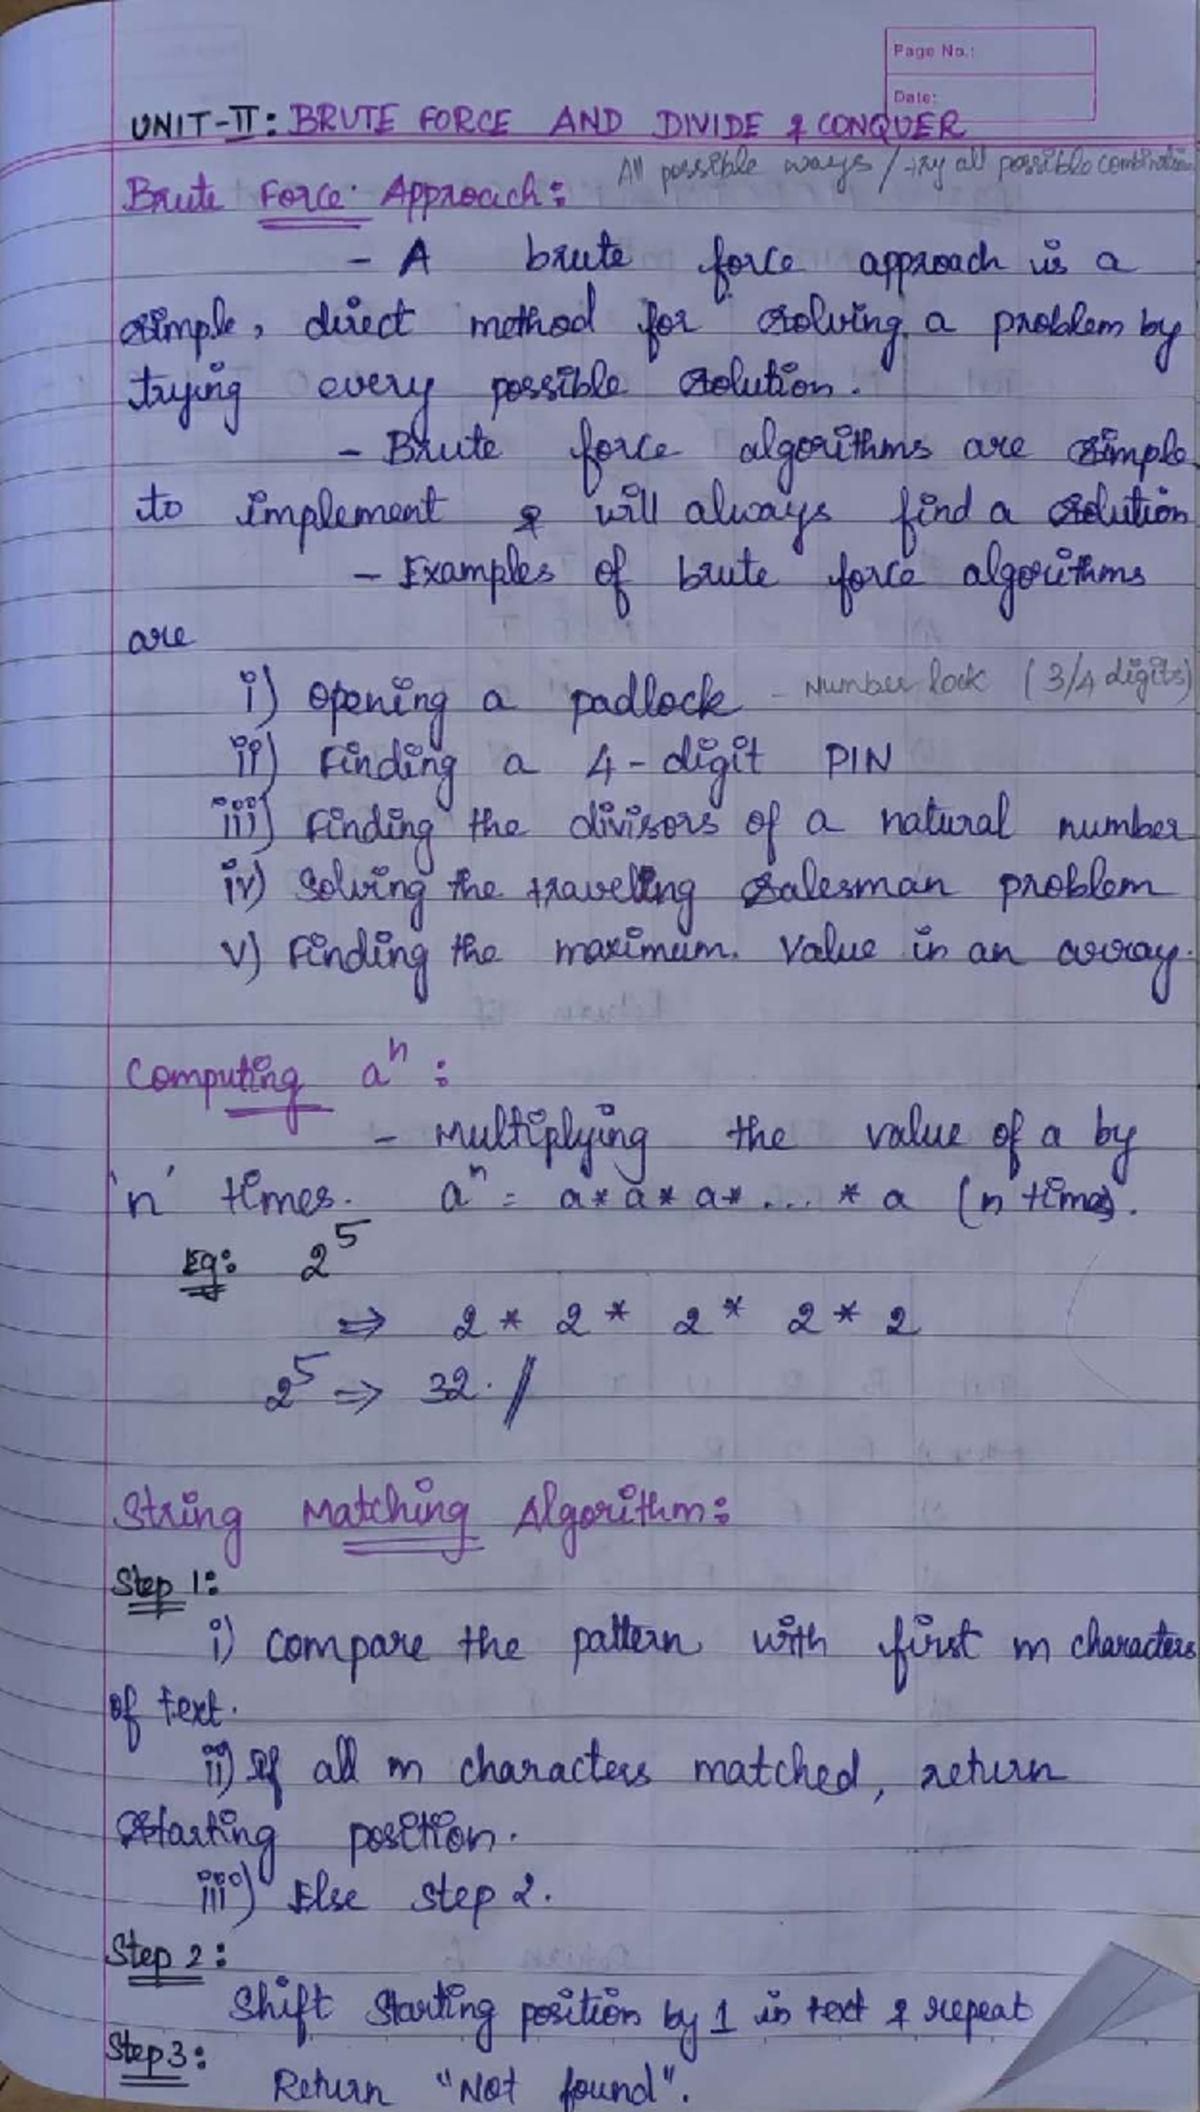 Page No.:
Date:
UNIT-II: BRUTE FORCE AND DIVIDE & CONQUER
All possible ways / try all possible combination
Brute Force Approach:
- A brute force approach is a
simple, direct method for solving a problem by
trying every possible solution.
- Brute force algorithms are simple
to implement & will always find a solution
- Examples of brute force algorithms
are
i) Opening a padlock - Number lock (3/4 digits)
ii) Finding a 4-digit PIN
iii) Finding the divisors of a natural number
iv) Solving the traveling salesman problem
v) Finding the maximum value in an array.
Computing aⁿ:
- Multiplying the value of a by
'n' times. aⁿ = a*a*a*...*a (n times).
Eg: 2⁵
⇒ 2 * 2 * 2 * 2 * 2
2⁵ ⇒ 32. //
String Matching Algorithm:
Step 1:
i) compare the pattern with first m characters
of text.
ii) If all m characters matched, return
starting position.
iii) Else step 2.
Step 2:
Shift starting position by 1 in text & repeat
Step 3:
Return "Not found".